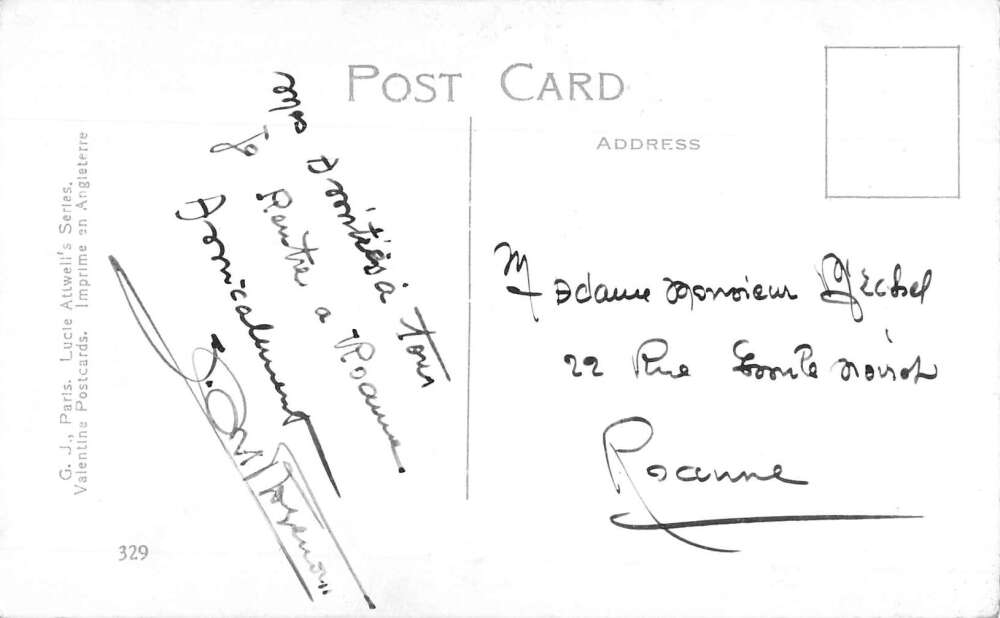 POST CARD
ADDRESS
G. J., Paris. Lucie Attwell's Series.
Valentine Postcards. Imprime en Angleterre
Mes Amitiés a Tous
Je Rentre a Roanne
Amicalement
Madame Monsieur Méchel
22 Rue Emile Noirot
Roanne
329